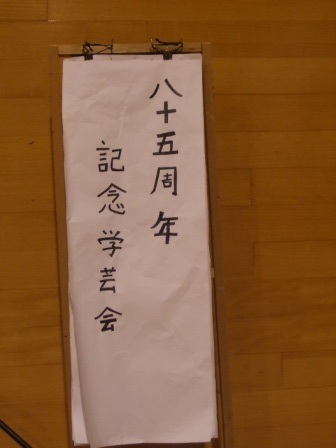 八十五周年
記念学芸会